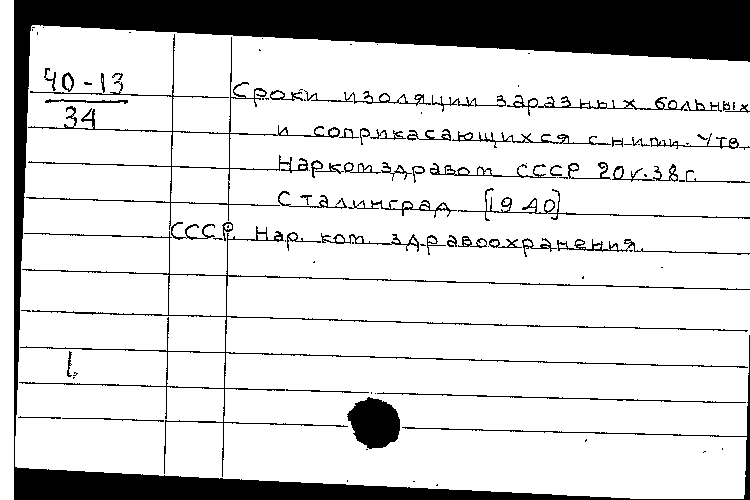 40-13
34
Сроки изоляции заразных больных
и соприкасающихся с ними. Утв.
Наркомздравом СССР 20.V.38г.
Сталинград [1940]
СССР. Нар. ком. здравоохранения.